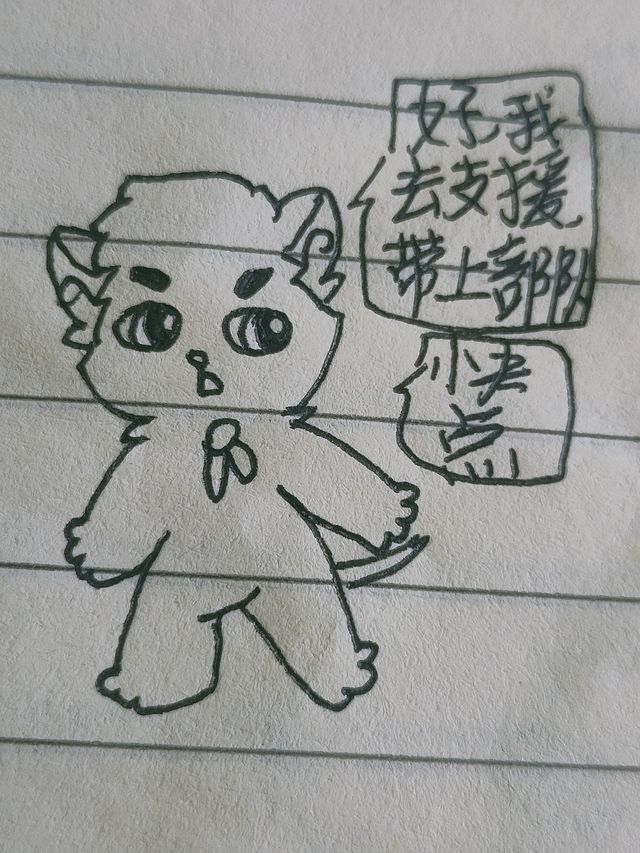 好我
去支援
带上部队
快
点